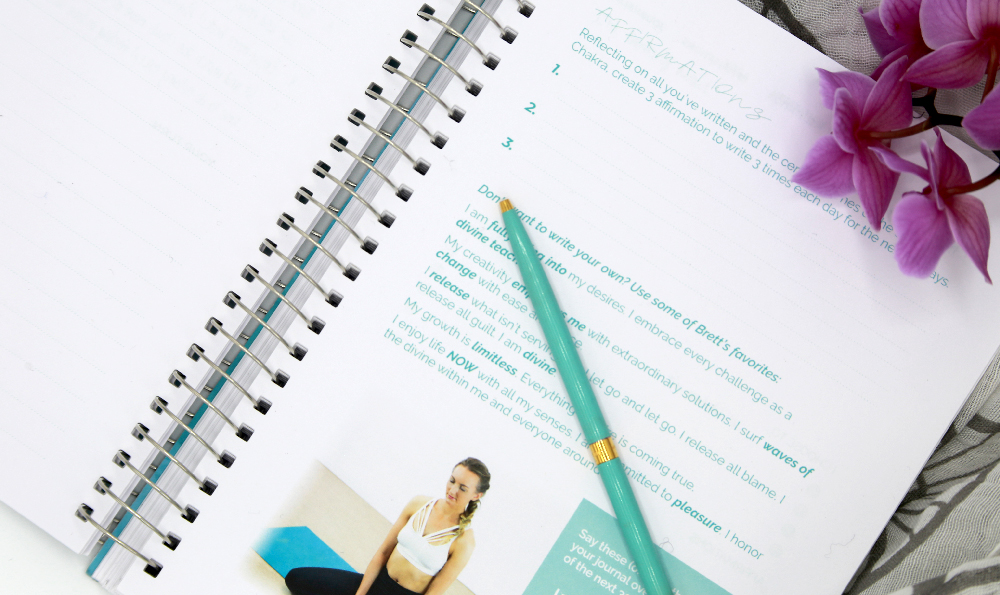 AFFIRMATIONS
Reflecting on all you've written and the
Chakra, create 3 affirmation to write 3 times each day for the days.
1.
2.
3.
to write your own? Use some of Brett's favorites:
I am into my desires. I embrace every challenge as a
divine
My creativity me with extraordinary solutions. I surf waves of
change with ease
I release what isn't let go and let go. I release all blame, I
release all guilt. I am divine
My growth is limitless. Everything is coming true.
I enjoy life NOW with all my senses. I to pleasure. I honor
the divine within me and everyone
Say these
your journal
of the next